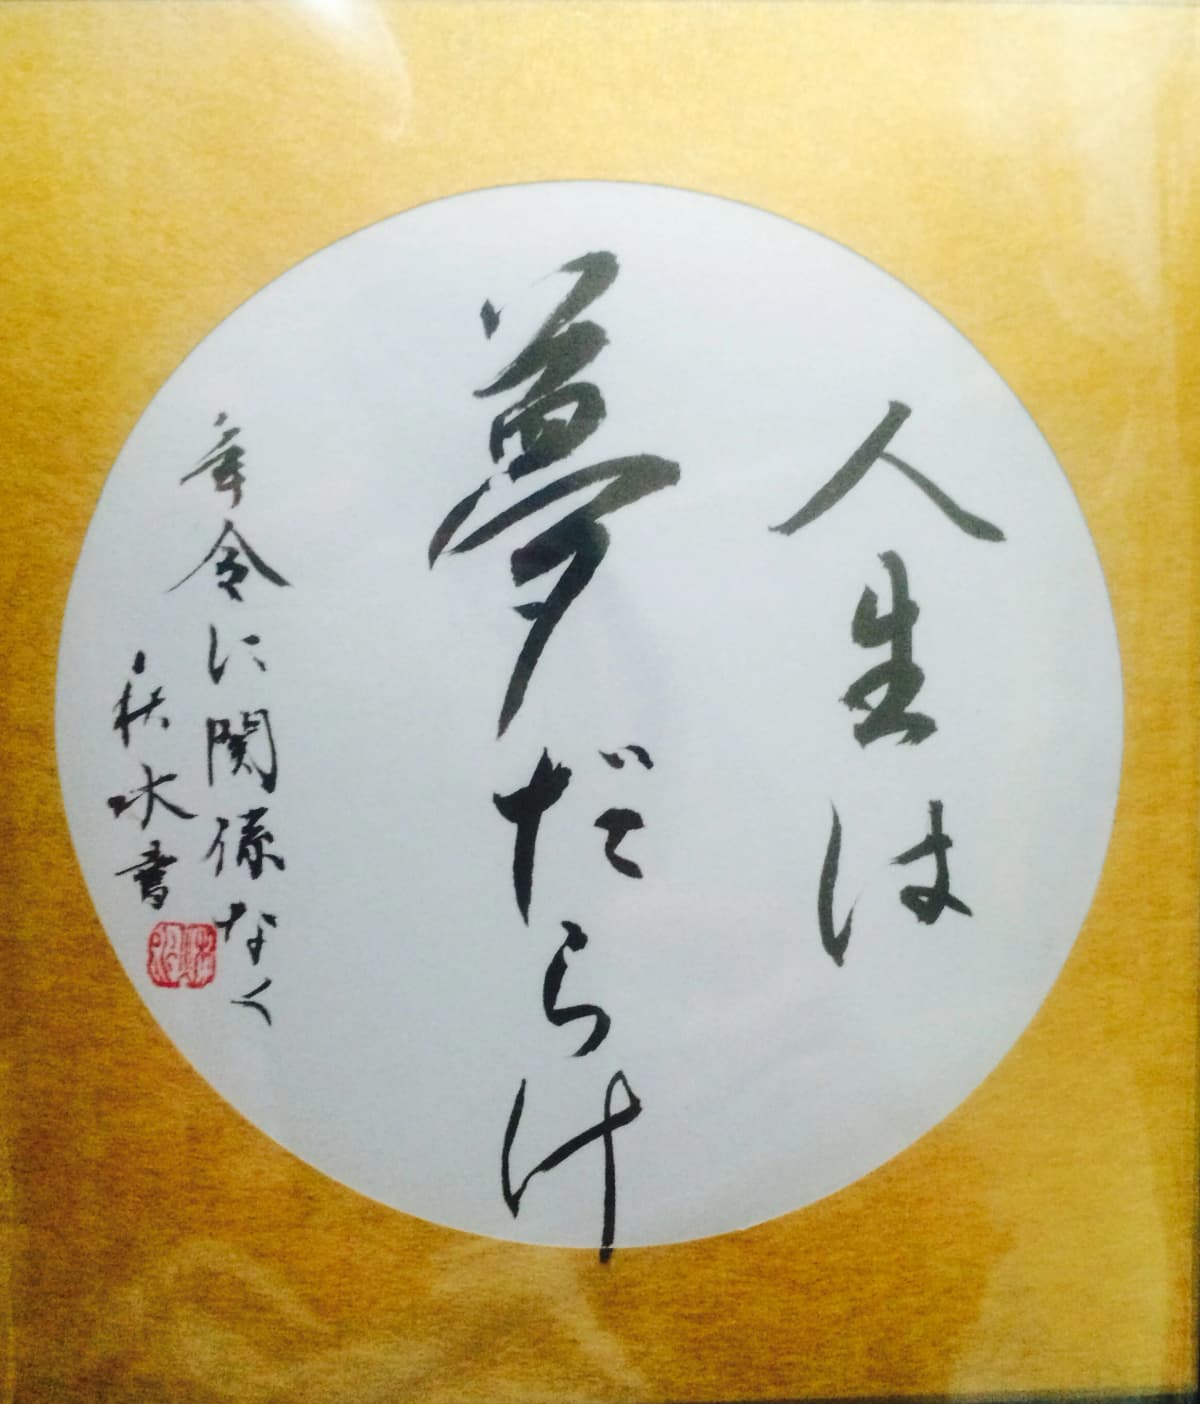 人生は
夢だらけ
年令に関係なく
秋水書